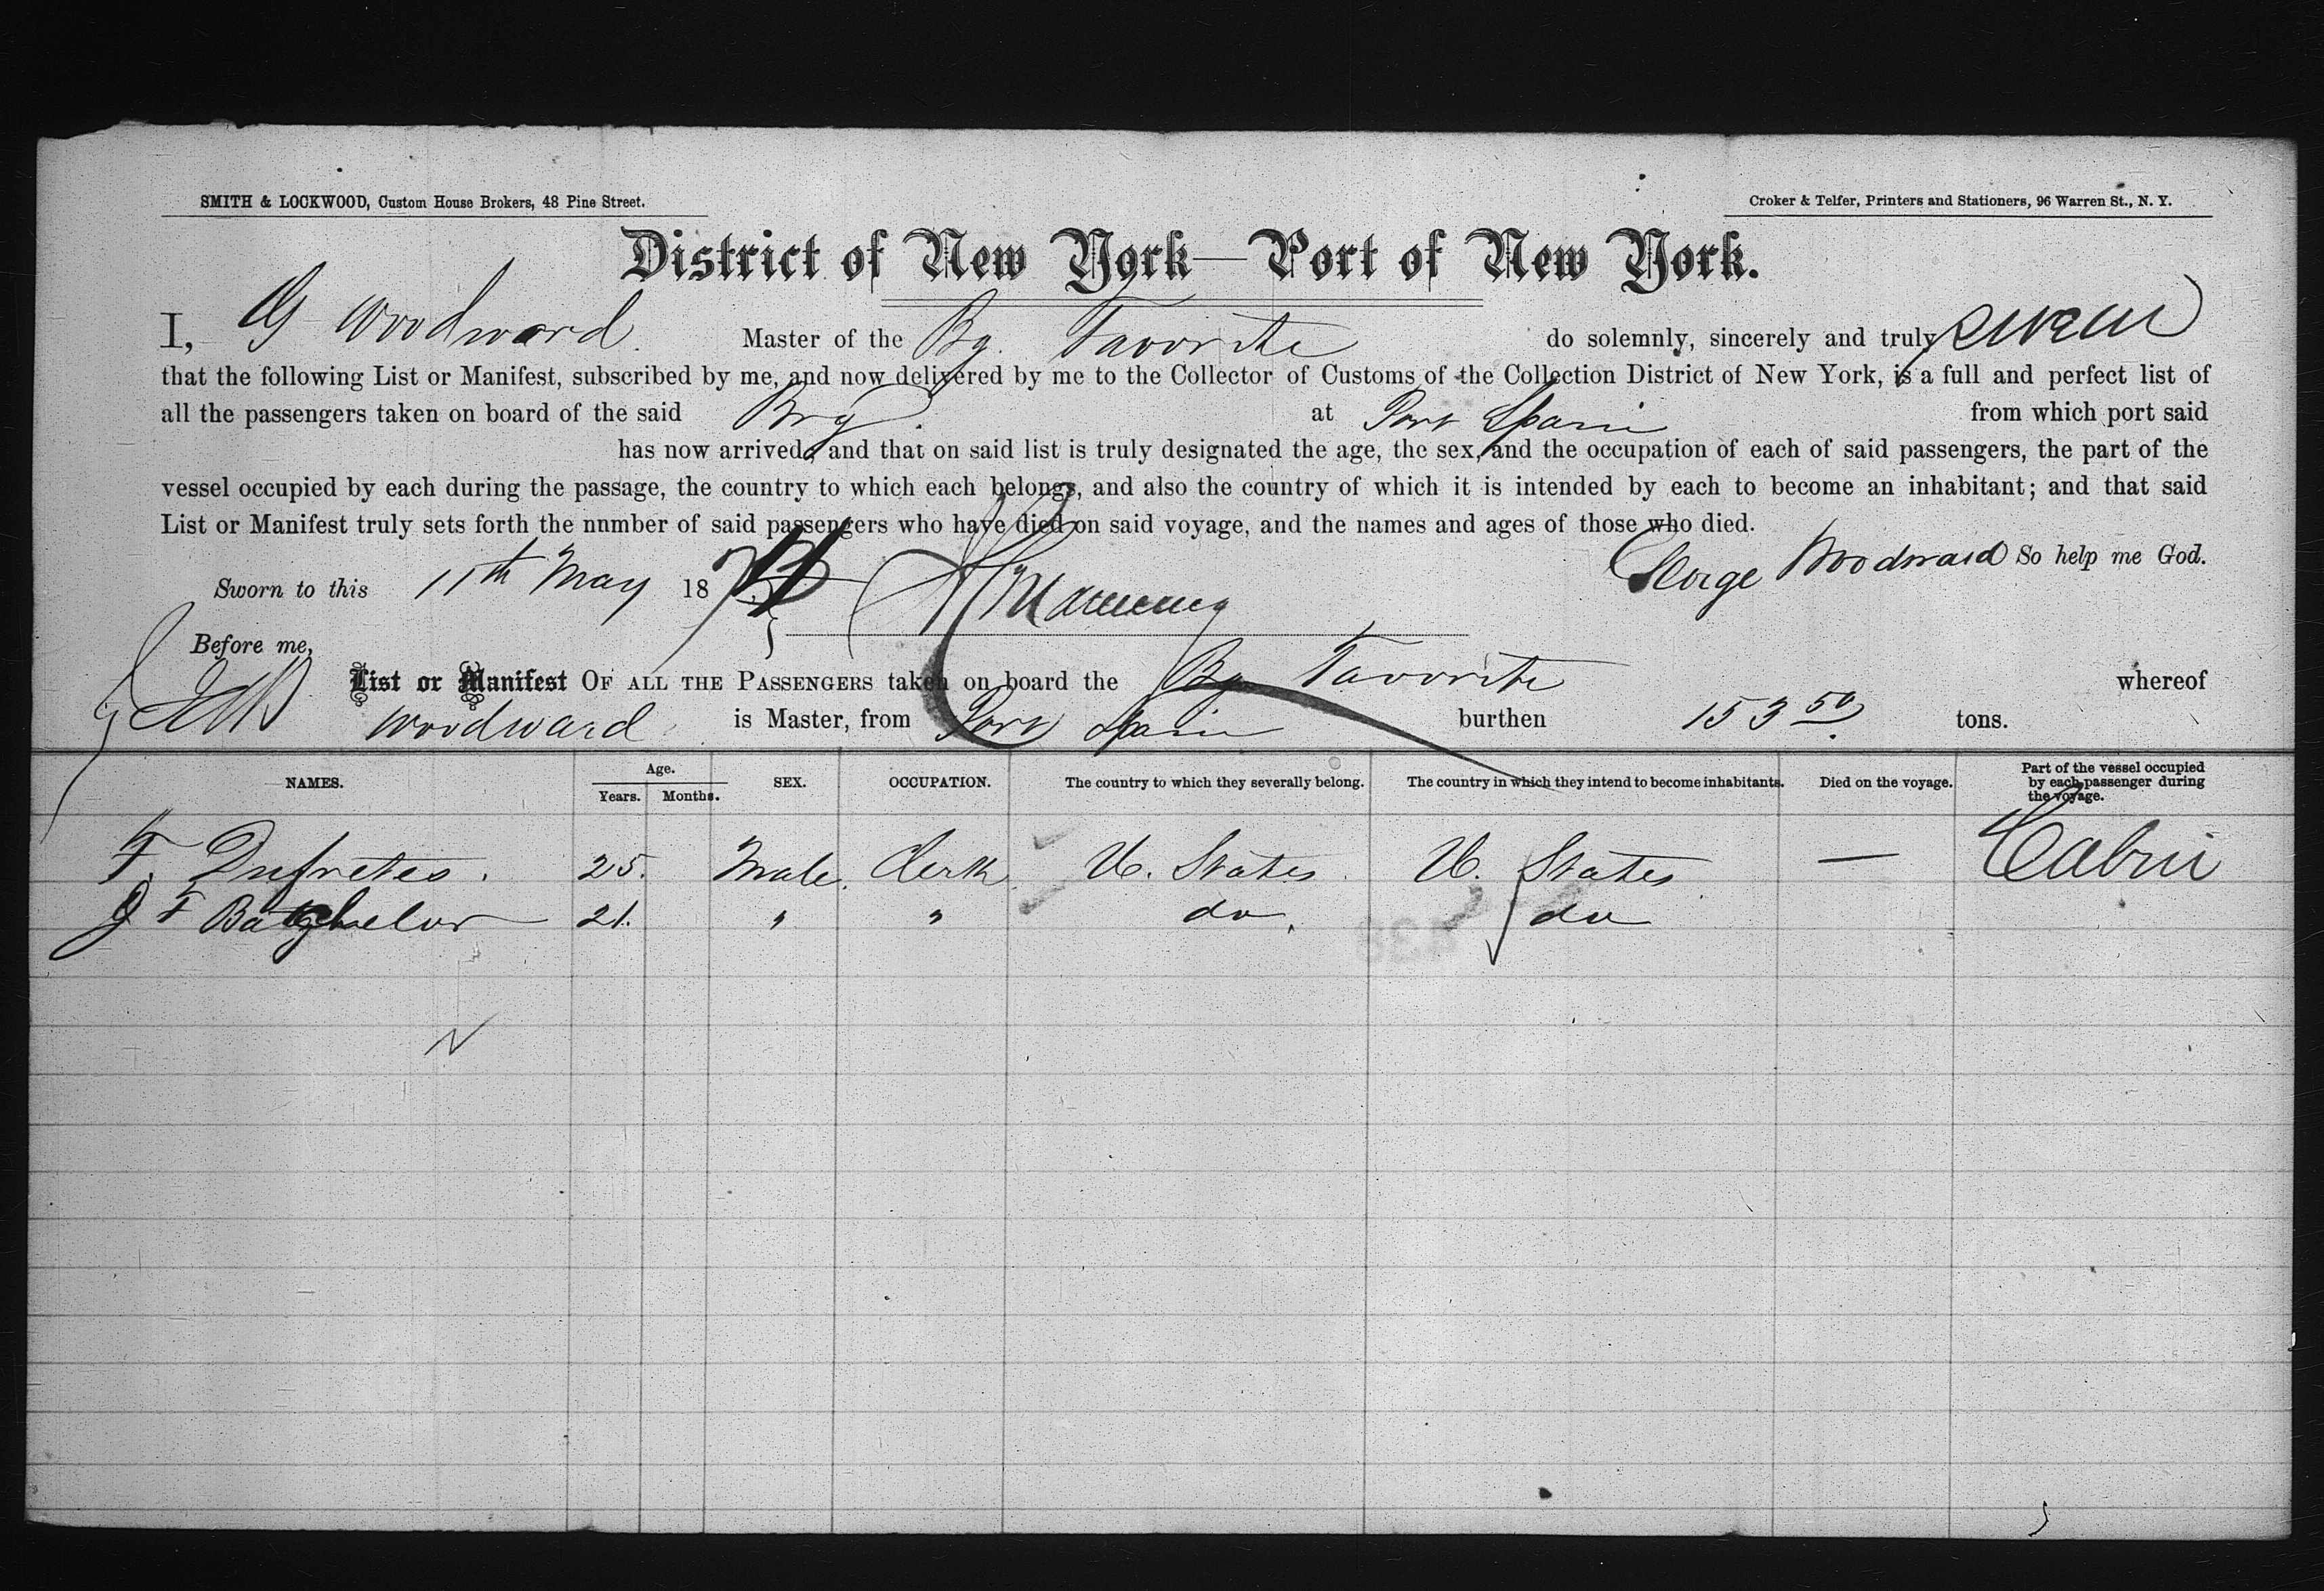 SMITH & LOCKWOOD, Custom House Brokers, 48 Pine Street.
Croker & Telfer, Printers and Stationers, 96 Warren St., N. Y.
District of New York—Port of New York.
I, G Woodward Master of the Bg. Favorite do solemnly, sincerely and truly swear
that the following List or Manifest, subscribed by me, and now delivered by me to the Collector of Customs of the Collection District of New York, is a full and perfect list of
all the passengers taken on board of the said Brg. at Port Spain from which port said
has now arrived, and that on said list is truly designated the age, the sex, and the occupation of each of said passengers, the part of the
vessel occupied by each during the passage, the country to which each belongs, and also the country of which it is intended by each to become an inhabitant; and that said
List or Manifest truly sets forth the nnmber of said passengers who have died on said voyage, and the names and ages of those who died.
George Woodward So help me God.
Sworn to this 11th May 187
Before me,
List or Manifest OF ALL THE PASSENGERS taken on board the Bg Favorite whereof
Woodward is Master, from Port Spain burthen 153 50 tons.
NAMES. Age. Years. Months. SEX. OCCUPATION. The country to which they severally belong. The country in which they intend to become inhabitants. Died on the voyage. Part of the vessel occupied by each passenger during the voyage.
F. Dufretes. 25. Male. Clerk U. States. U. States — Cabin
J F Batchelor 21. " " do. do